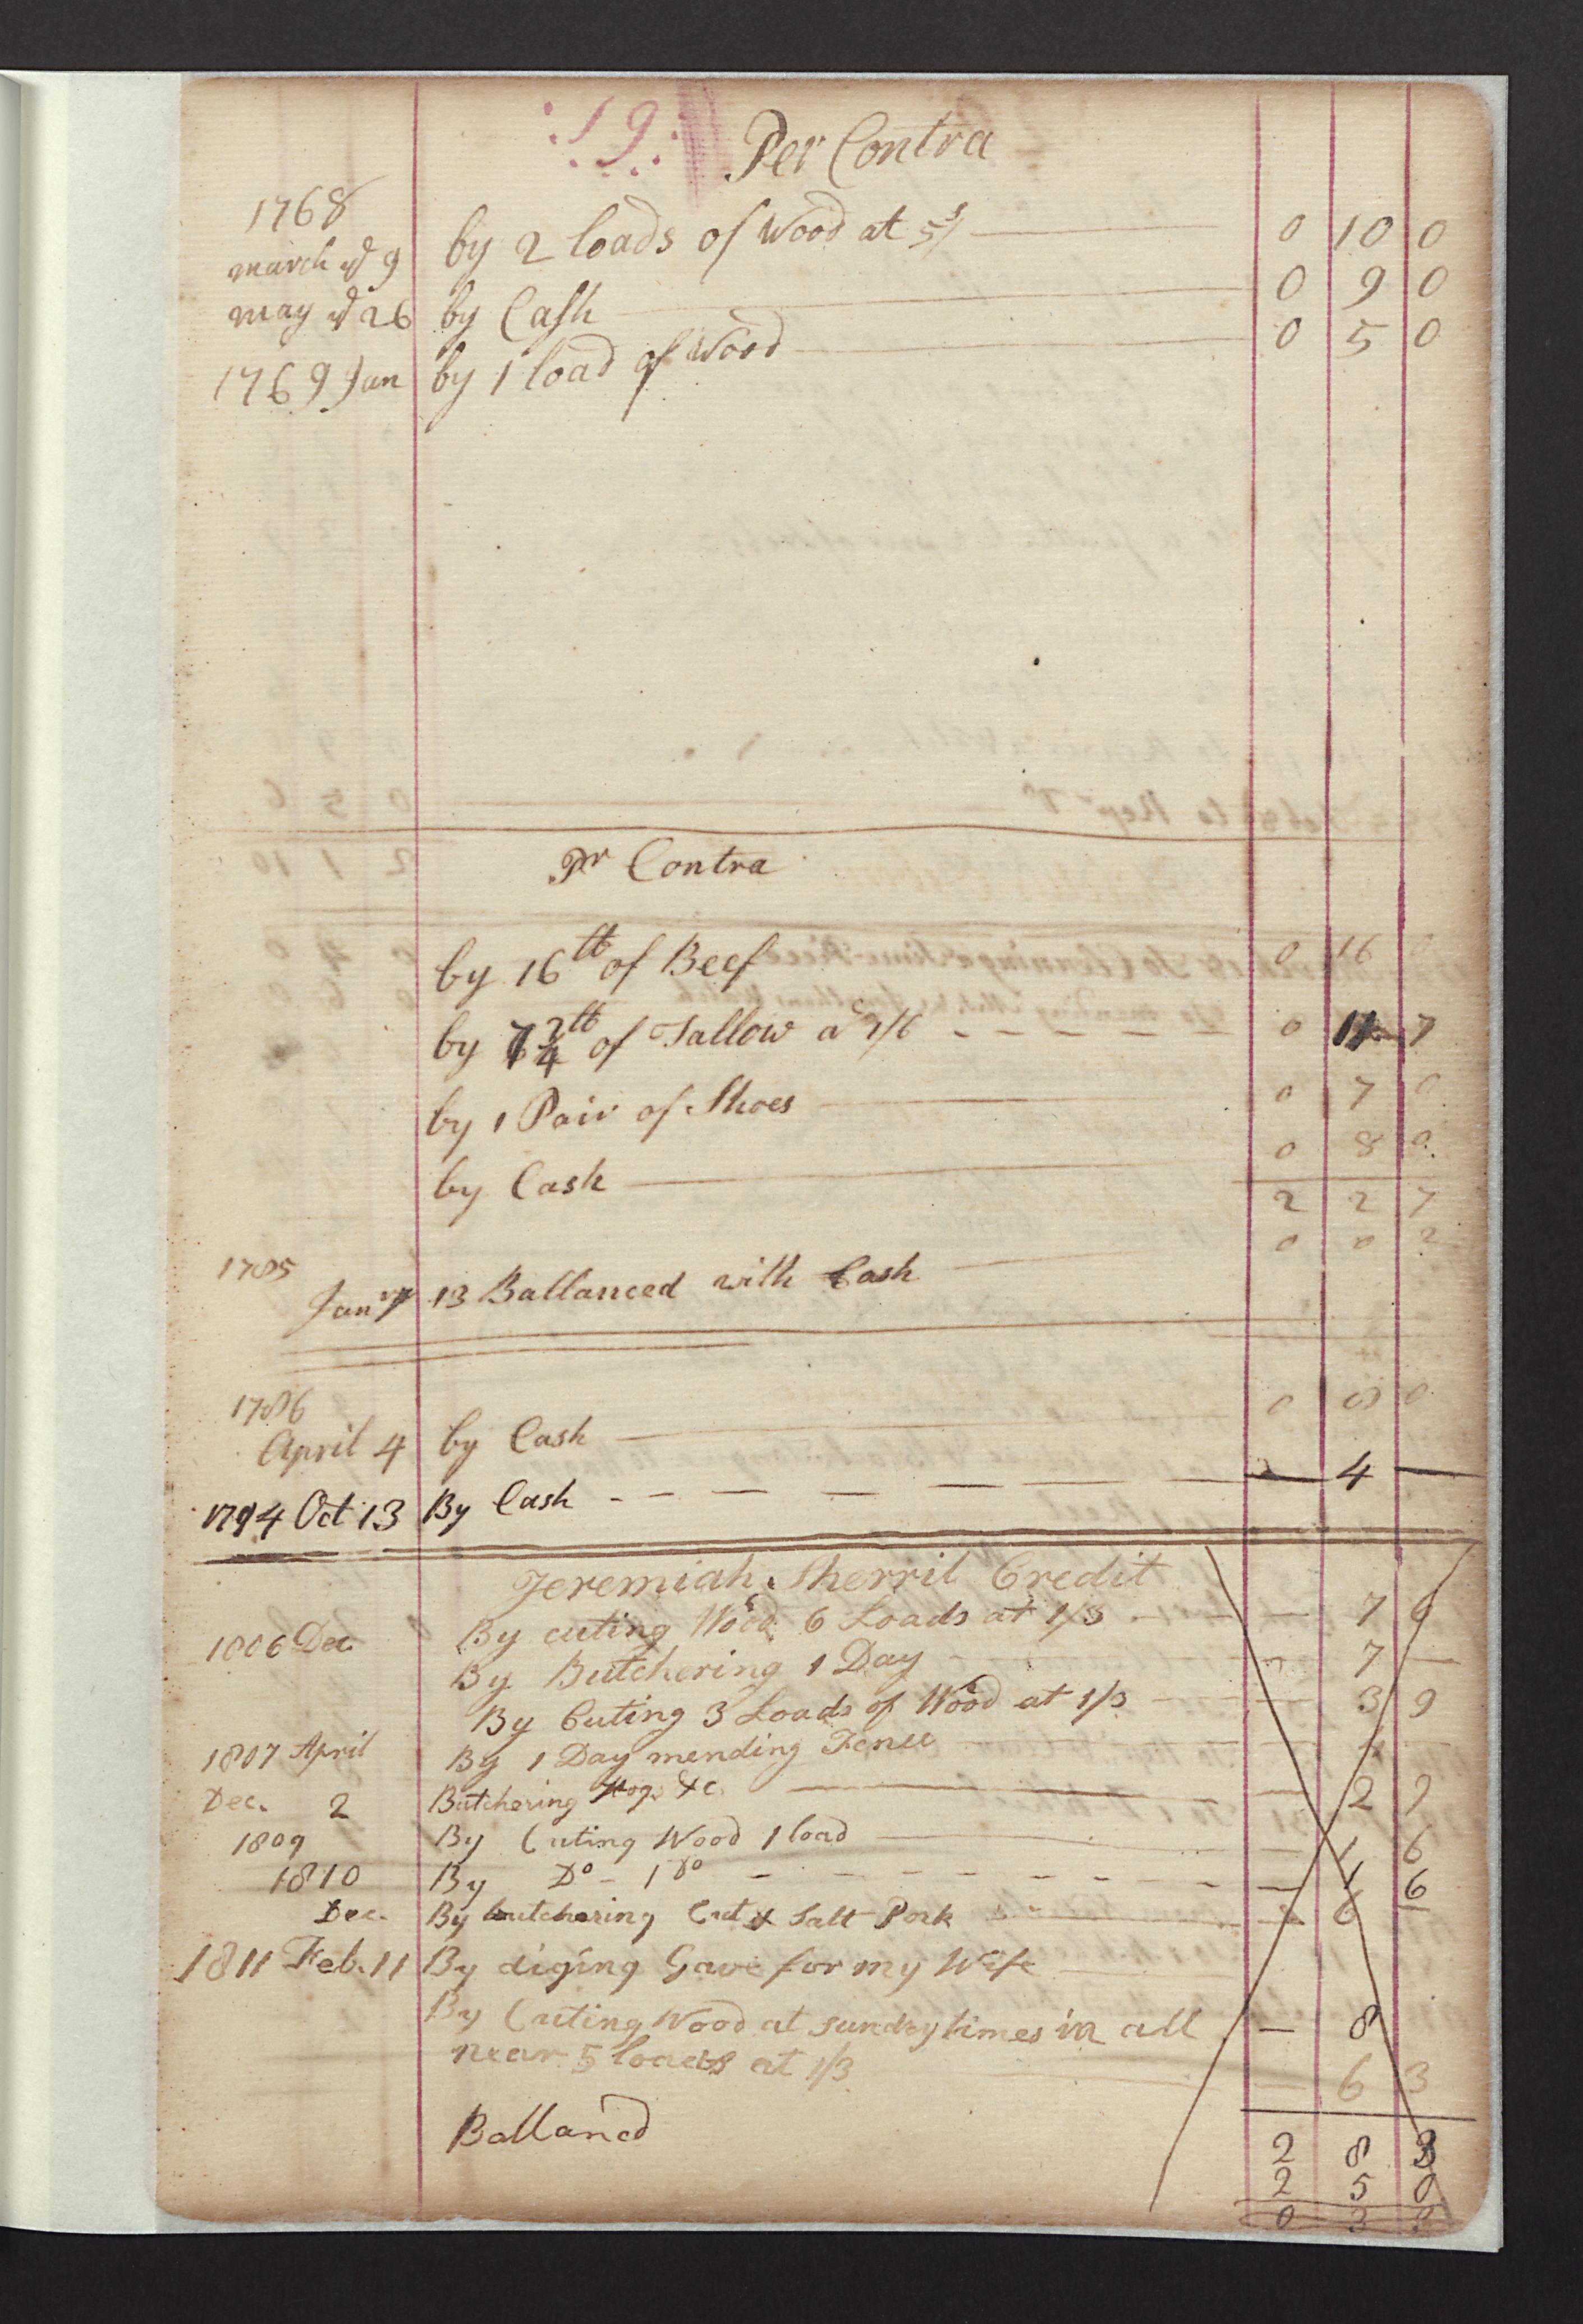 :19:
Per Contra
1768
march ye 9 by 2 loads of Wood at 5s/ 0 10 0
may ye 26 by Cash 0 9 0
1769 Jan by 1 load of Wood 0 5 0
Pr Contra
by 16 tt of Beef 0 16 0
by 7 3/4 tt of Tallow a 0 11 7
by 1 Pair of Shoes 0 7 0
by Cash 0 8 0
2 2 7
1785 0 0 2
Janry 13 Ballanced with Cash
1786
April 4 by Cash 0 8 0
1794 Oct 13 By Cash - 4 -
Jeremiah Sherril Credit
1806 Dec By cuting Wood 6 Loads at 1/3 - 7 6
By Butchering 1 Day - 7 -
By Cuting 3 Loads of Wood at 1/3 - 3 9
1807 April By 1 Day mending Fence
Dec. 2 Butchering Hogs &c. - 2 9
1809 By Cuting Wood 1 load - 1 6
1810 By Do - 1 Do - 1 6
Dec. By butchering Cut & Salt Pork - 6 -
1811 Feb. 11 By diging Gave for my Wife
By Cuting Wood at sundry times in all - 8
near 5 loads at 1/3 - 6 3
Balland 2 8 3
2 5 0
0 3 3